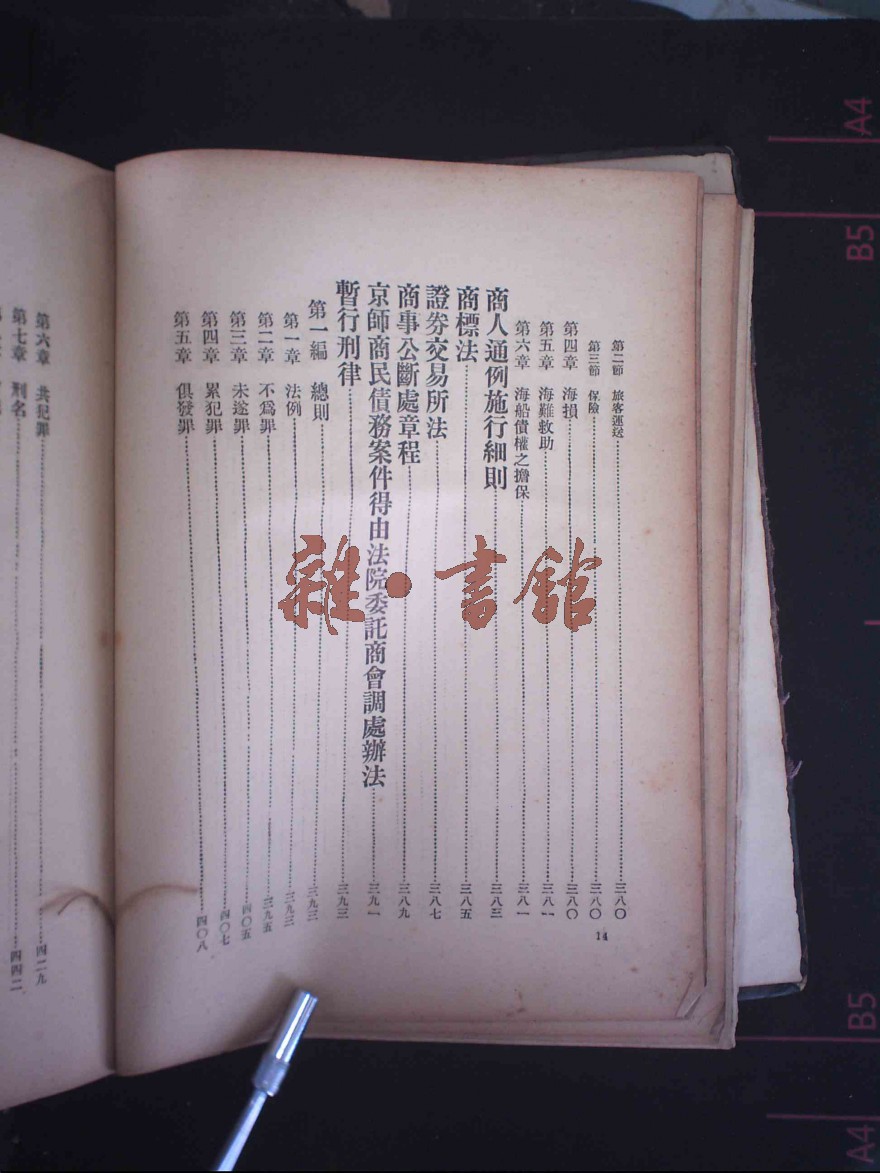 第二節 旅客運送……三八〇
第三節 保險……三八〇
第四章 海損……三八〇
第五章 海難救助……三八一
第六章 海船債權之擔保……三八一
商人通例施行細則……三八三
商標法……三八五
證券交易所法……三八七
商事公斷處章程……三八九
京師商民債務案件得由法院委託商會調處辦法……三九一
暫行刑律……三九三
第一編 總則……三九三
第一章 法例……三九三
第二章 不爲罪……三九五
第三章 未遂罪……四〇五
第四章 累犯罪……四〇七
第五章 俱發罪……四〇八
14
第六章 共犯罪……四二九
第七章 刑名……四四二
雜·書館
A4
B5
B5
A4